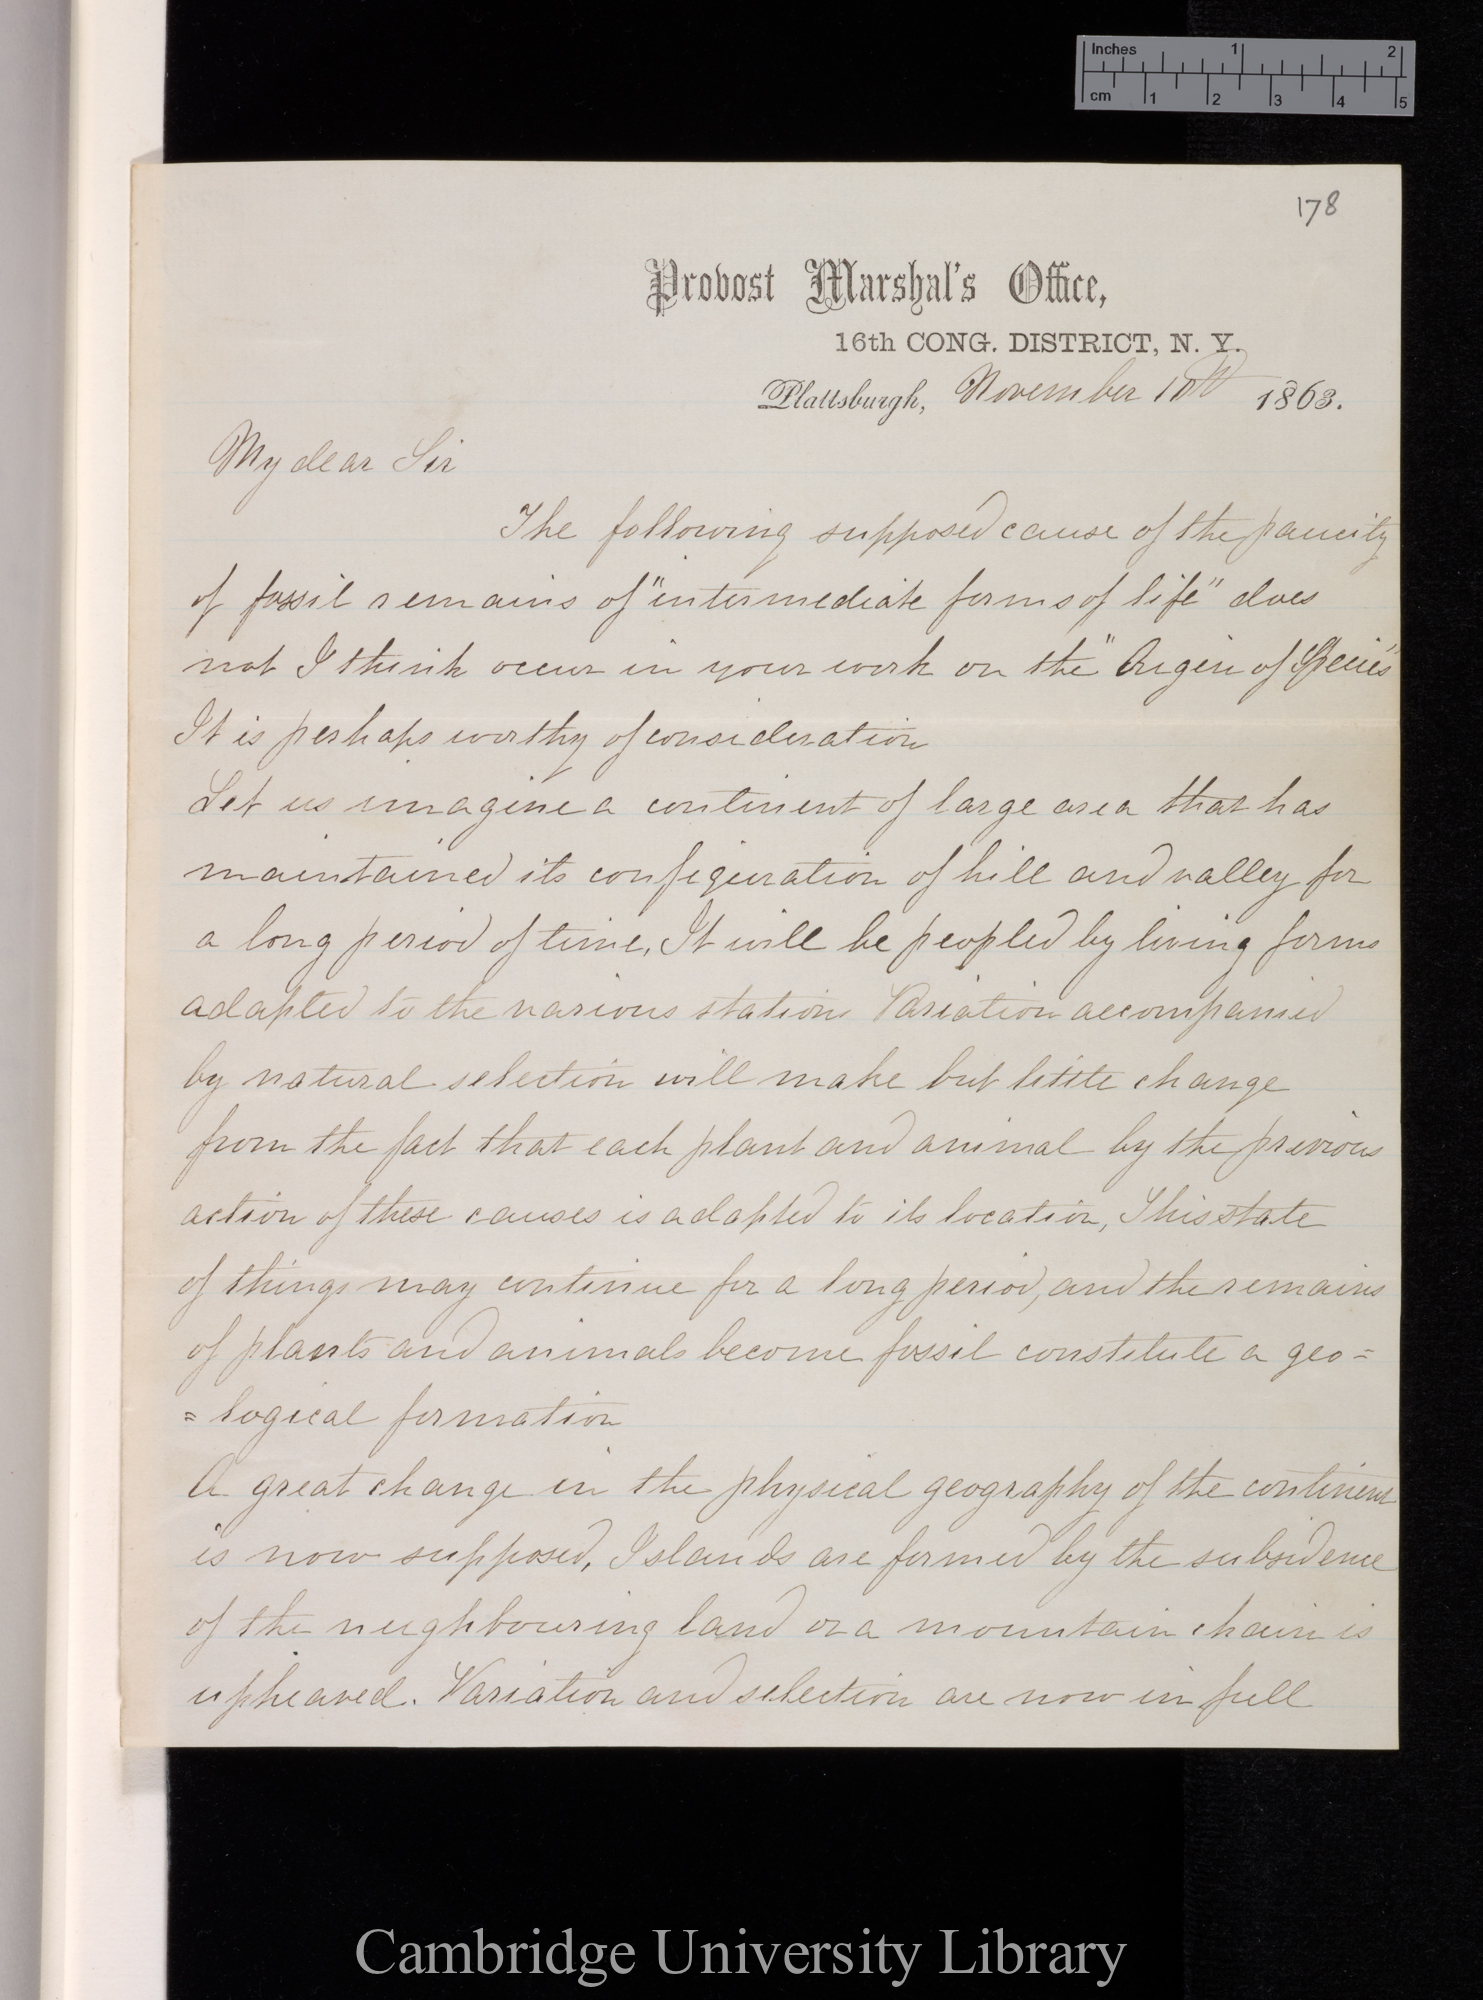 Inches 1 2
cm 1 2 3 4 5
178
Provost Marshal's Office,
16th CONG. DISTRICT, N. Y.
Plattsburgh, November 10th 1863.
My dear Sir
The following supposed cause of the paucity
of fossil remains of "intermediate forms of life" does
not I think occur in your work on the "Origin of Species"
It is perhaps worthy of consideration
Let us imagine a continent of large area that has
maintained its configuration of hill and valley for
a long period of time, It will be peopled by living forms
adapted to the various stations Variation accompanied
by natural selection will make but little change
from the fact that each plant and animal by the previous
action of these causes is adapted to its location, This state
of things may continue for a long period, and the remains
of plants and animals become fossil constitute a geo=
=logical formation
A great change in the physical geography of the continent
is now supposed, Islands are formed by the subsidence
of the neighbouring land or a mountain chain is
upheaved. Variation and selection are now in full
Cambridge University Library